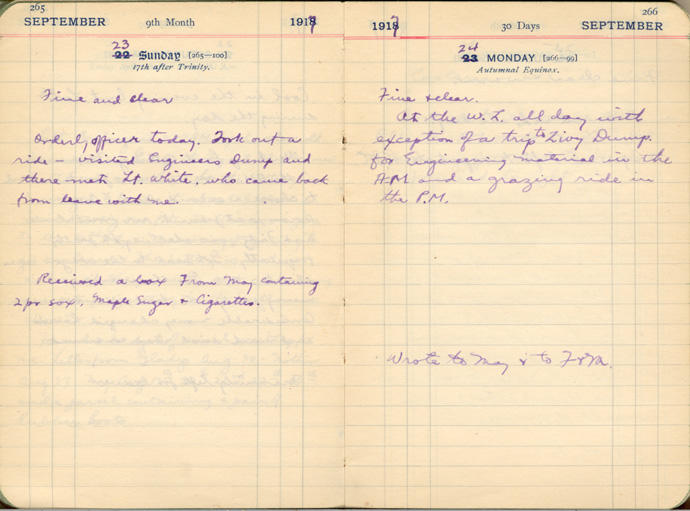 265
SEPTEMBER 9th Month 1917
23
22 Sunday [265—100]
17th after Trinity.
Fine and clear
Orderly officer today. Took out a
ride — visited Engineers Dump and
there met Lt. White, who came back
from leave with me.
Received a box From May containing
2 pr sox, Maple Sugar & Cigarettes.
266
1917 30 Days SEPTEMBER
24
23 MONDAY [266—99]
Autumnal Equinox.
Fine & clear.
At the W. L. all day with
exception of a trip to Livy Dump.
for Engineering material in the
A.M and a grazing ride in
the P.M.
Wrote to May & to F & M.